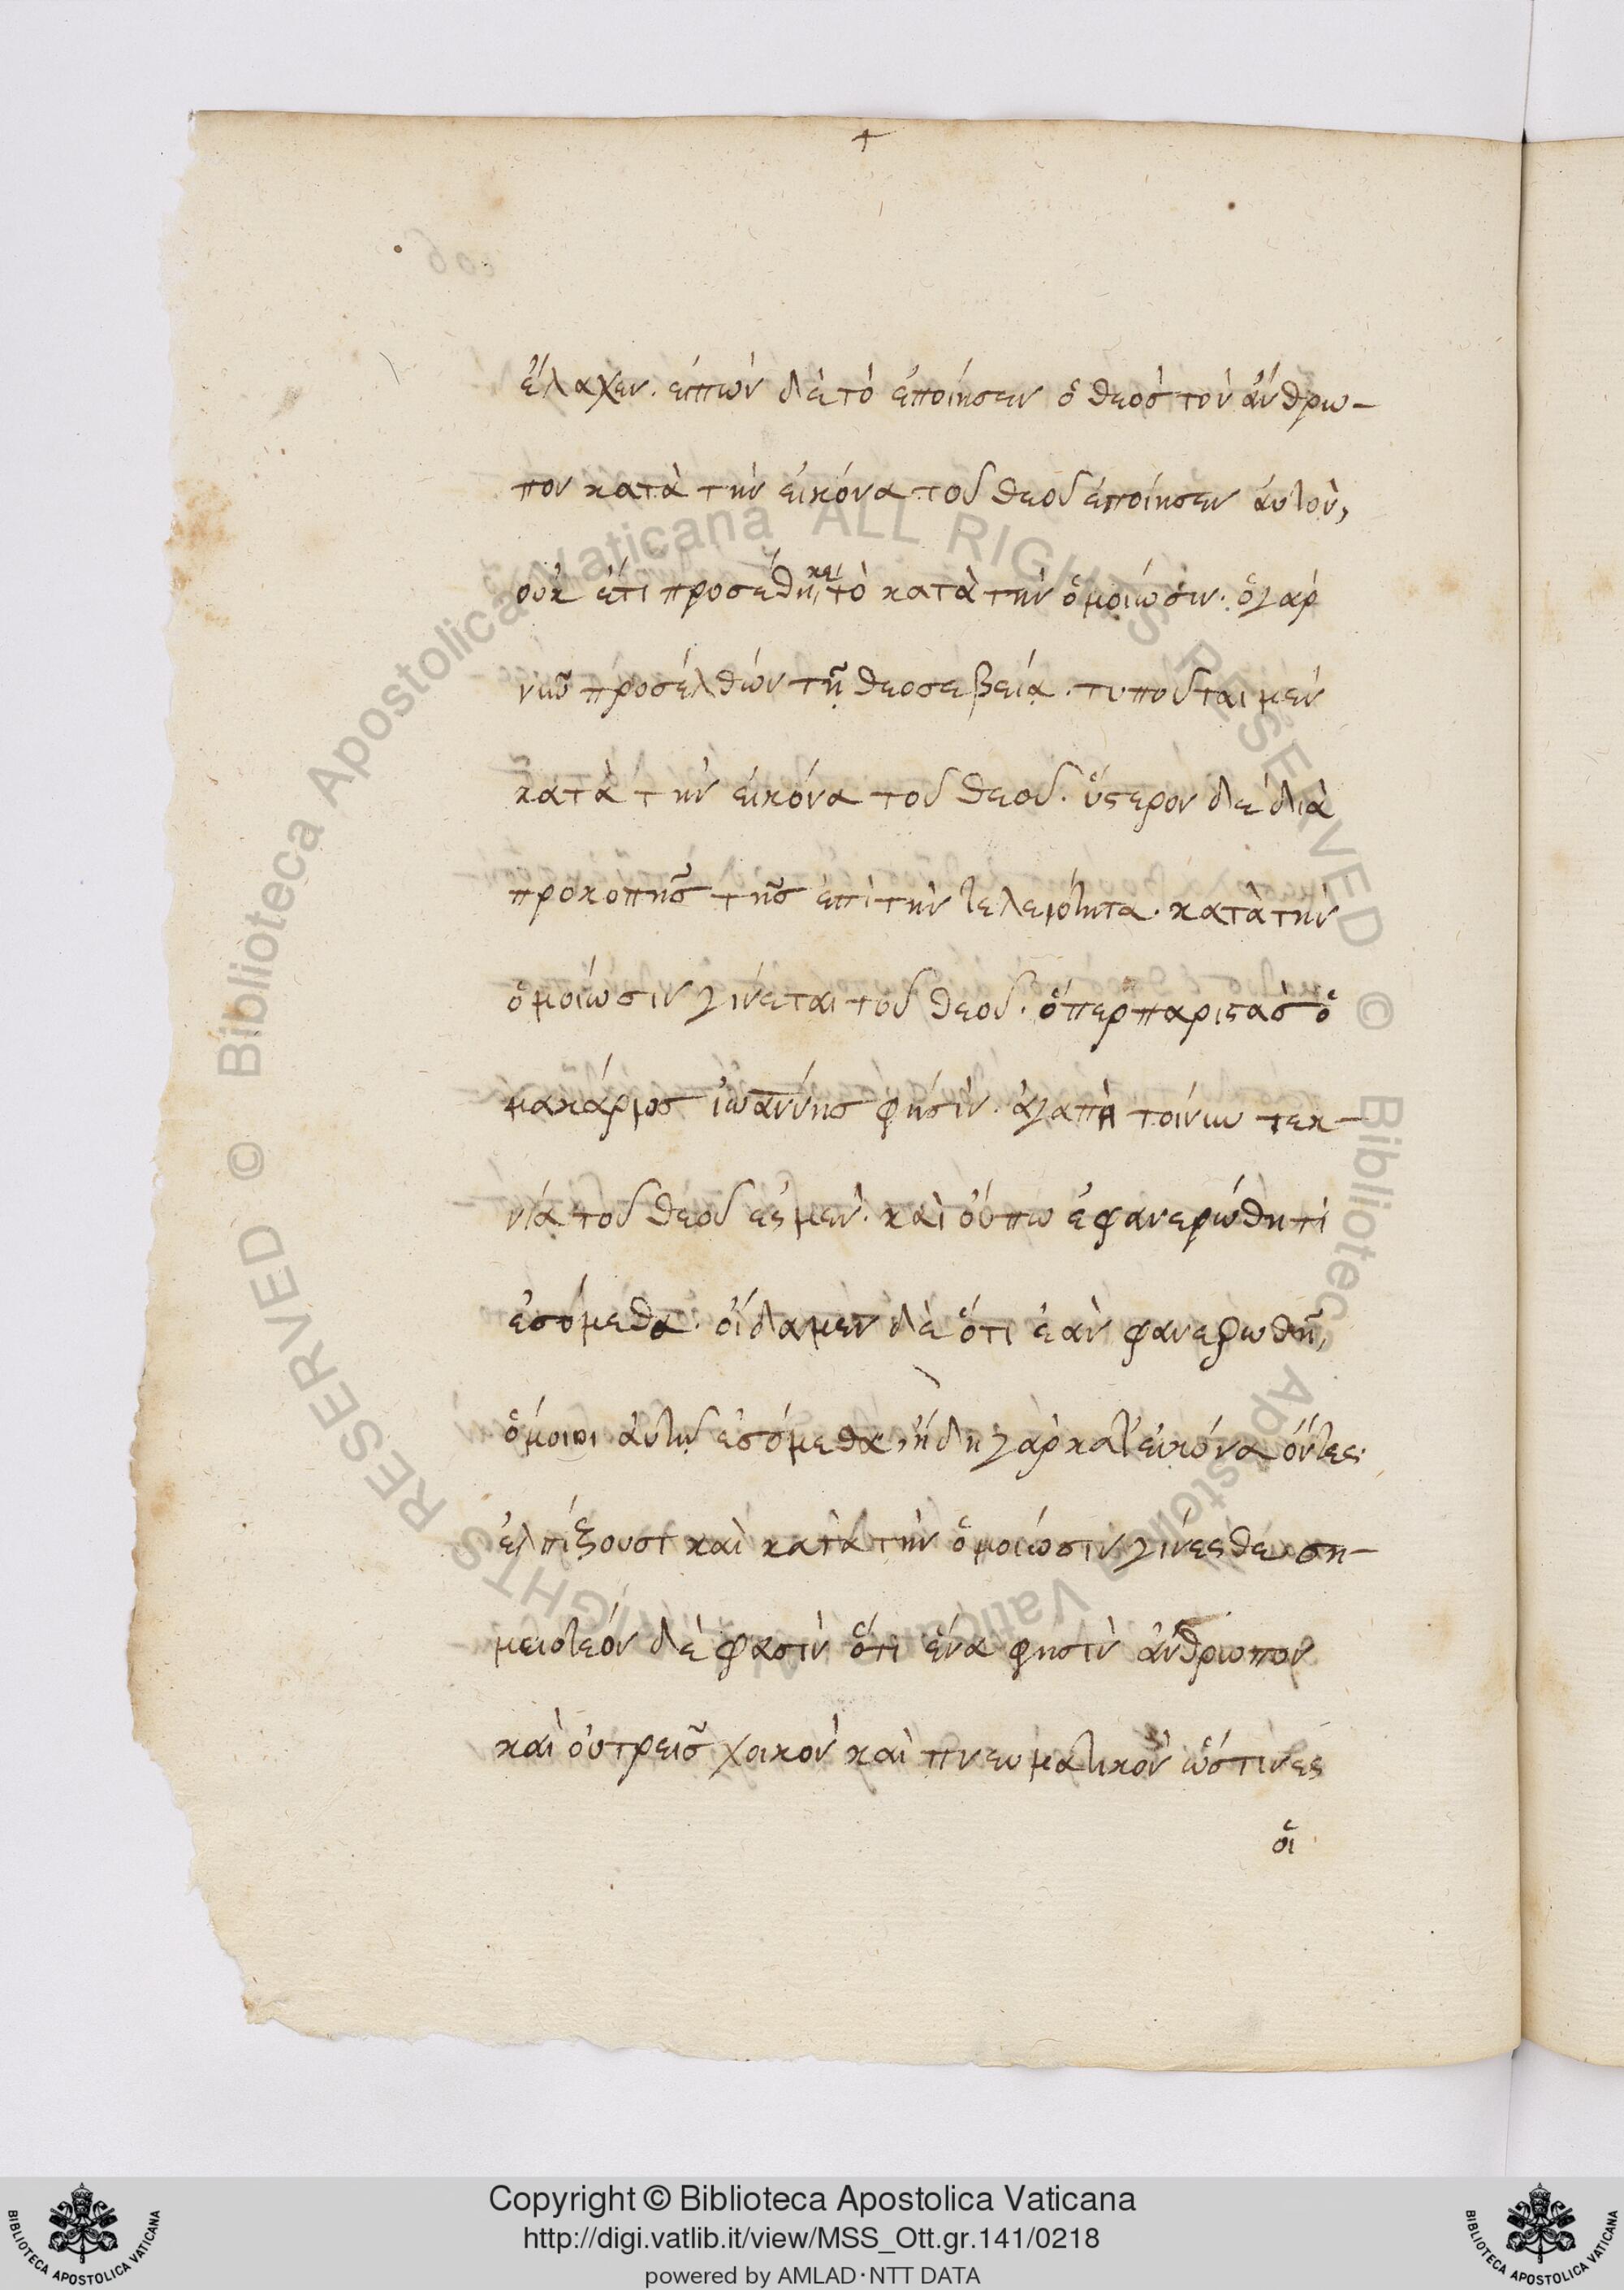 +
ἔλαχεν. εἰπὼν δὲ τὸ ἐποίησεν ὁ θεὸσ τὸν ἄνθρω-
πον κατὰ τὴν εἰκόνα τοῦ θεοῦ ἐποίησεν ἀυτὸν,
οὐκ ἔτι προσέθηκε τὸ κατὰ τὴν ὁμοίωσιν. ὁ γὰρ
νῦν προσελθὼν τῇ θεοσεβείᾳ. τυποῦται μὲν
κατὰ τὴν εἰκόνα τοῦ θεοῦ. ὕστερον δὲ διὰ
προκοπῆσ τῆσ ἐπὶ τὴν τελειότητα. κατὰ τὴν
ὁμοίωσιν γίνεται τοῦ θεοῦ. ὅπερ παριστὰσ ὁ
μακάριος ἰωάννης φησὶν. ἀγαπη τοίνυν τεκ-
νία τοῦ θεοῦ ἐσμεν. καὶ οὔπω ἐφανερώθη τί
ἐσόμεθα. οἴδαμεν δὲ ὅτι ἐὰν φανερωθῇ,
ὅμοιοι ἀυτῷ ἐσόμεθα, ἤδη γὰρ κατ' εἰκόνα ὄντες.
ἐλπίζουσι καὶ κατὰ τὴν ὁμοίωσιν γίνεσθαι ση-
μειοτεόν δὲ φασὶν ὅτι ἕνα φησὶν ἄνθρωπον
καὶ οὐ τρεῖσ χοικὸν καὶ πνευματικὸν ὥστινες
οἱ
Copyright © Biblioteca Apostolica Vaticana
http://digi.vatlib.it/view/MSS_Ott.gr.141/0218
powered by AMLAD·NTT DATA